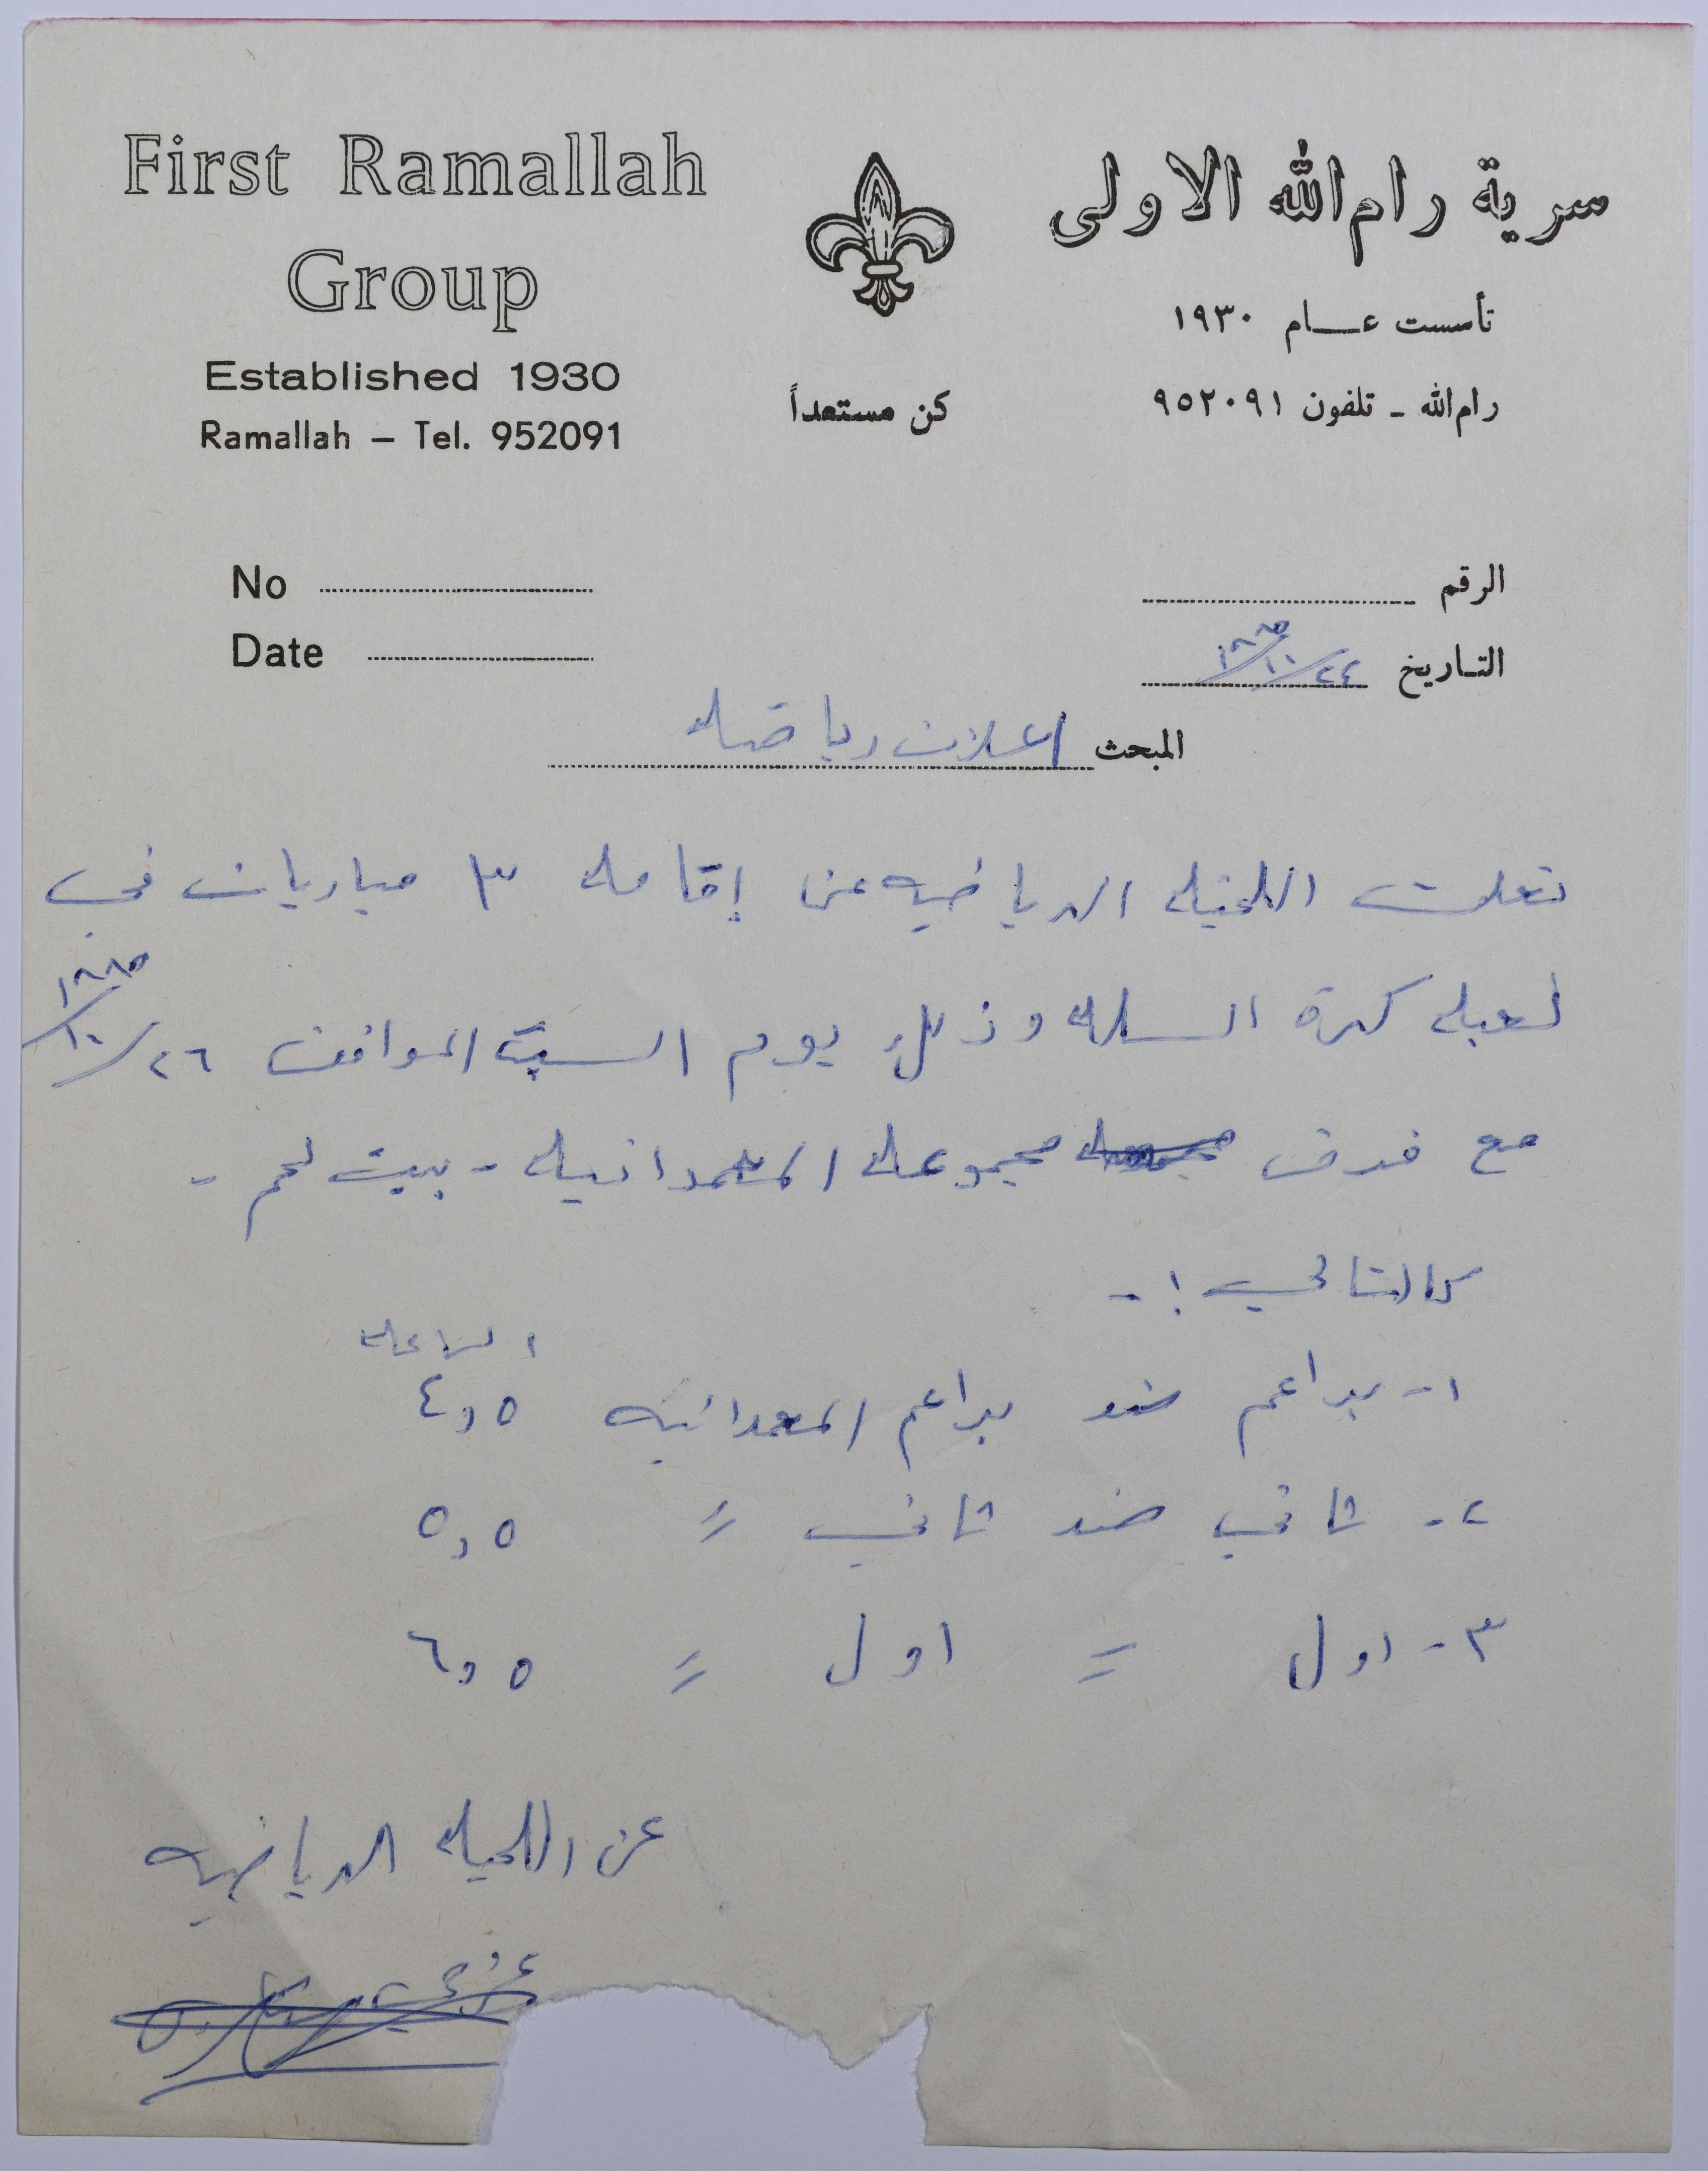 First Ramallah
Group
Established 1930
Ramallah – Tel. 952091
سرية رام الله الاولى
تأسست عام ١٩٣٠
رام الله ـ تلفون ٩٥٢٠٩١
كن مستعداً
No
Date
الرقم
التاريخ ٢٤/١٠/١٩٨٥
المبحث اعلان رياضيه
تعلن اللجنه الرياضيه عن إقامه ٣ مباريات في
لعبه كرة السله وذلك يوم السبت الموافق ٢٦/١٠/١٩٨٥
مع فرق مجموعه المعمدانيه - بيت لحم -
كالتالي :-
الساعه
١- براعم ضد براعم المعمدانيه ٤,٥
٢- ثاني ضد ثاني = ٥,٥
٣- اول = اول = ٦,٥
عن اللجنه الرياضيه